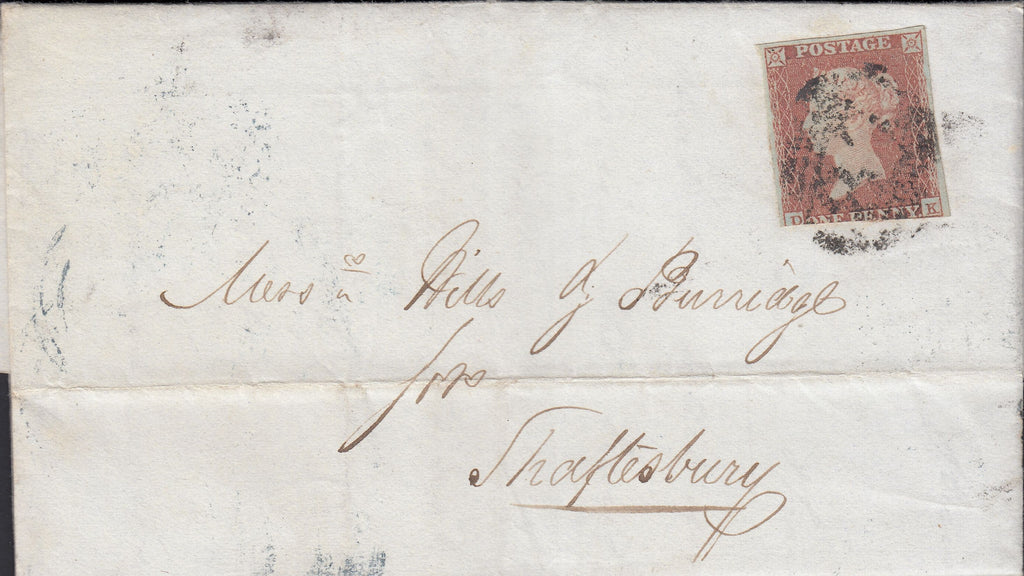 POSTAGE
D ONE PENNY K
Messrs Hills & Burridge
Shaftesbury